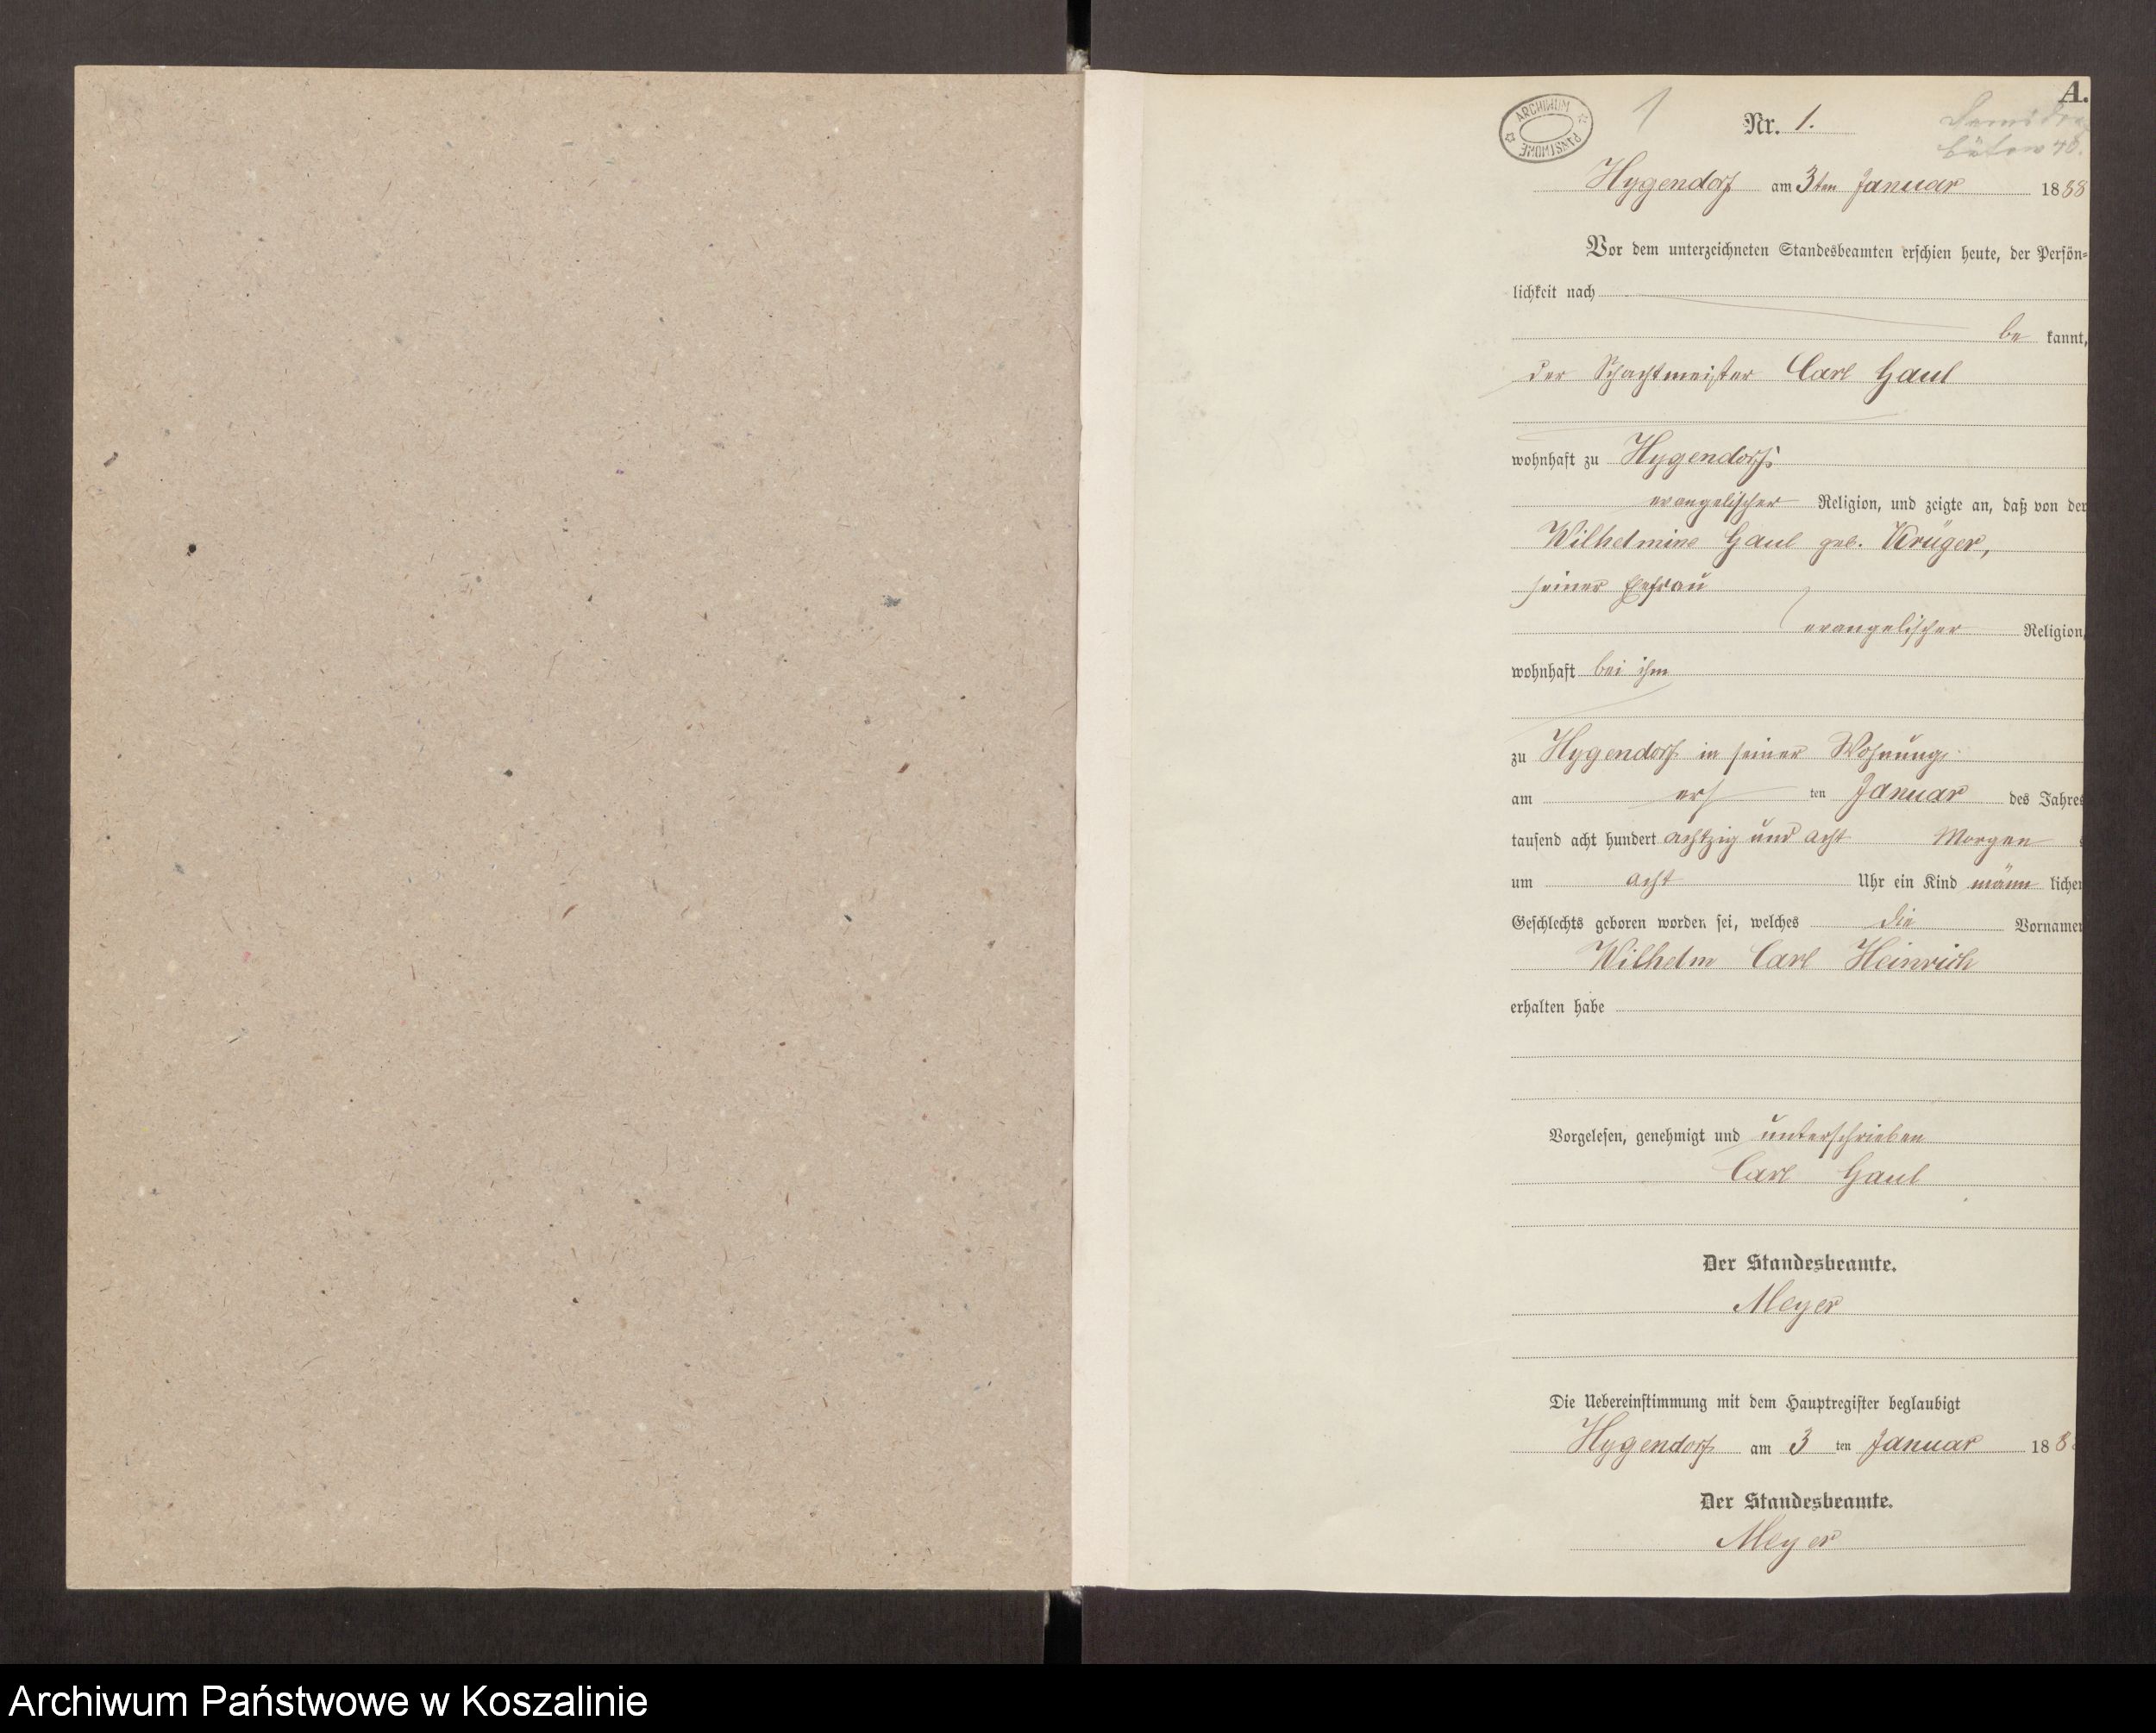 A.
ARCHIWUM PAŃSTWOWE
1
Nr. 1.
Hygendorf am 3ten Januar 1888
Vor dem unterzeichneten Standesbeamten erschien heute, der Persön-
lichkeit nach
be kannt,
der Schachtmeister Carl Gaul
wohnhaft zu Hygendorf
evangelischer Religion, und zeigte an, daß von der
Wilhelmine Gaul geb. Krüger,
seiner Ehefrau
evangelischer Religion,
wohnhaft bei ihm
zu Hygendorf in seiner Wohnung
am ers ten Januar des Jahres
tausend acht hundert achtzig und acht Morgen
um acht Uhr ein Kind männ lichen
Geschlechts geboren worden sei, welches die Vornamen
Wilhelm Carl Heinrich
erhalten habe
Vorgelesen, genehmigt und unterschrieben
Carl Gaul
Der Standesbeamte.
Meyer
Die Uebereinstimmung mit dem Hauptregister beglaubigt
Hygendorf am 3 ten Januar 188
Der Standesbeamte.
Meyer
Archiwum Państwowe w Koszalinie